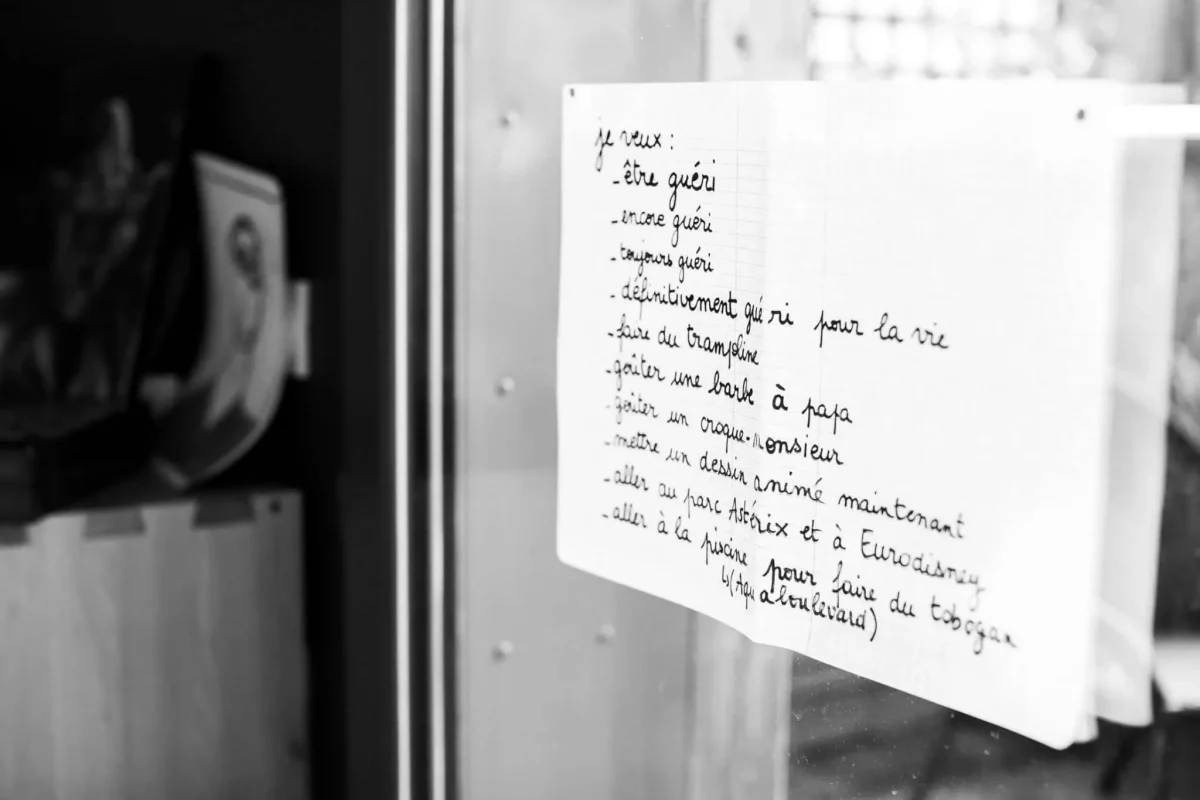 je veux :
- être guéri
- encore guéri
- toujours guéri
- définitivement guéri pour la vie
- faire du trampline
- goûter une barbe à papa
- goûter un croque-monsieur
- mettre un dessin animé maintenant
- aller au parc Astérix et à Eurodisney
- aller à la piscine pour faire du tobogan
↳ (Aqualoulevard)